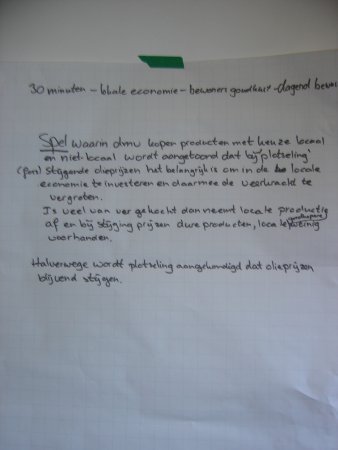 30 minuten - lokale economie - bewoners goudhurst - dagend bewo
Spel waarin dmv kopen producten met keuze locaal
en niet-locaal wordt aangetoond dat bij plotseling
(fors) stijgende olieprijzen het belangrijk is om in de locale
economie te investeren en daarmee de veerkracht te
vergroten.
Is veel van ver gekocht dan neemt locale productie
af en bij stijging prijzen dure producten, locale weinig
voorhanden.
Halverwege wordt plotseling aangekondigd dat olieprijzen
blijvend stijgen.